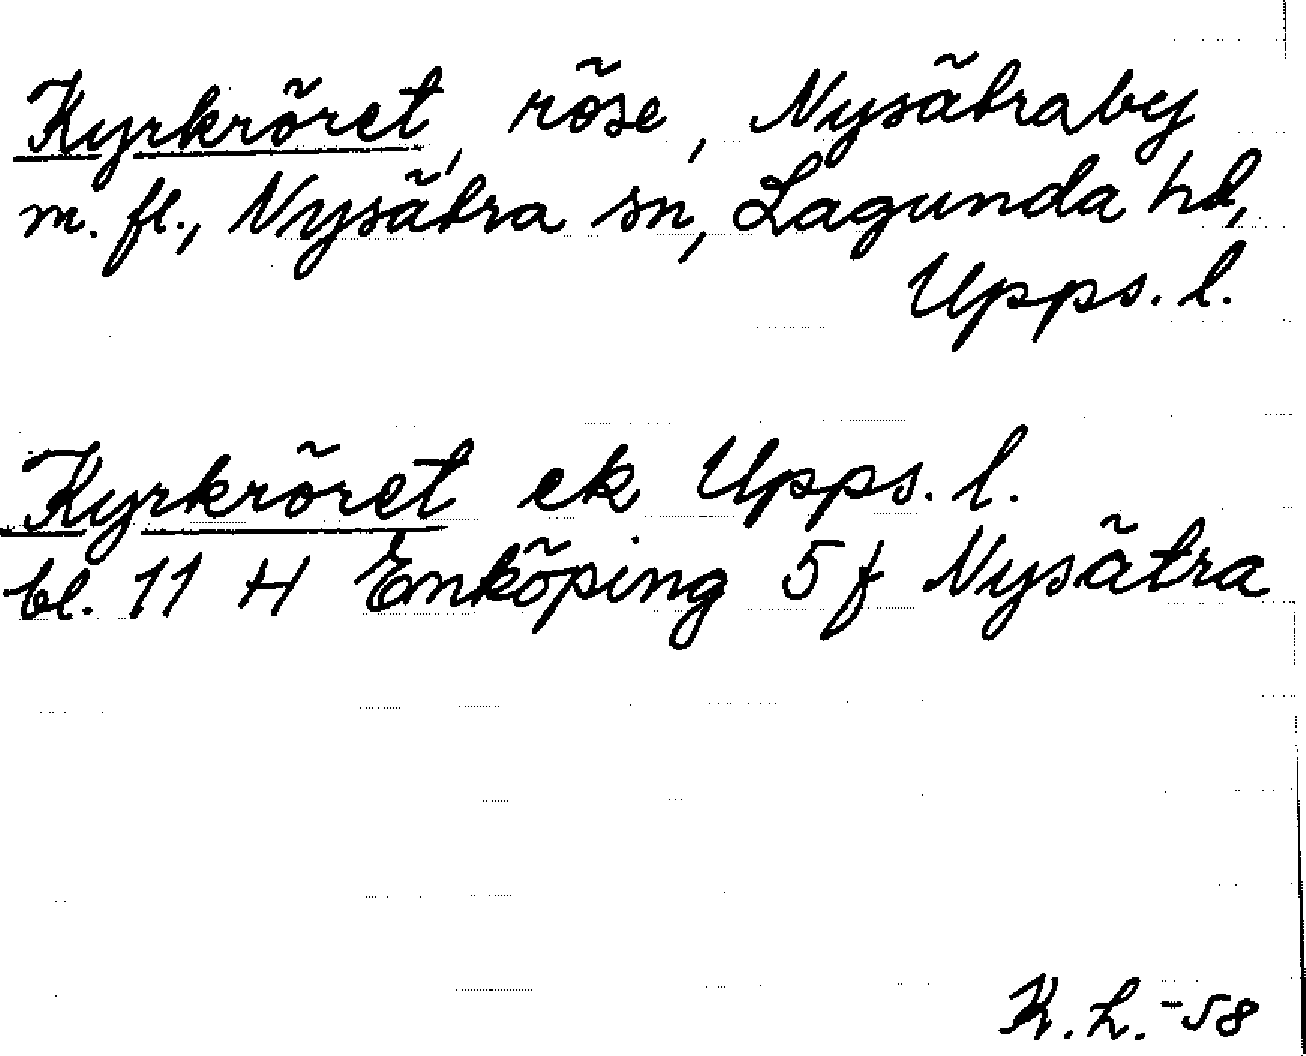 Kyrkröret, röse, Nysätraby
m. fl., Nysätra sn, Lagunda hd,
Upps. l.
Kyrkröret ek Upps. l.
bl. 11 H Enköping 5 f Nysätra
K. L. -58